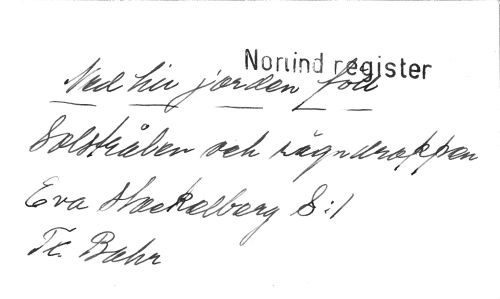 Norlind register
Ned till jorden föll
Solstrålen och rägndroppen
Eva Stackelberg S:1
Tr. Bahr